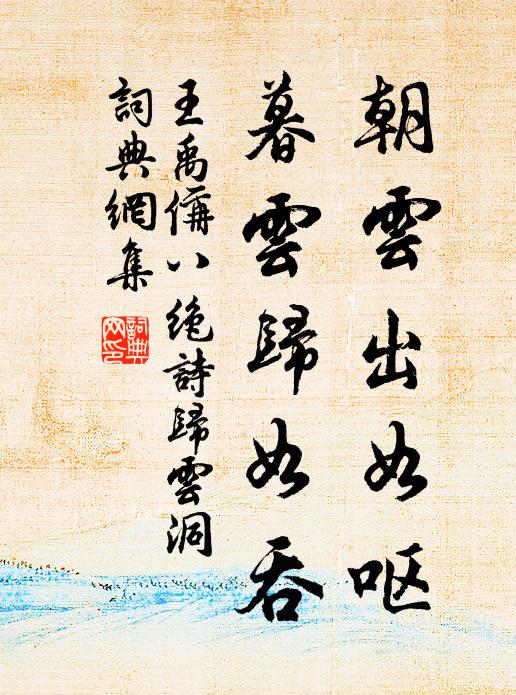 朝雲出如呕
暮雲歸如吞
王禹偁八绝詩歸雲洞
詞典網集
詞典网印